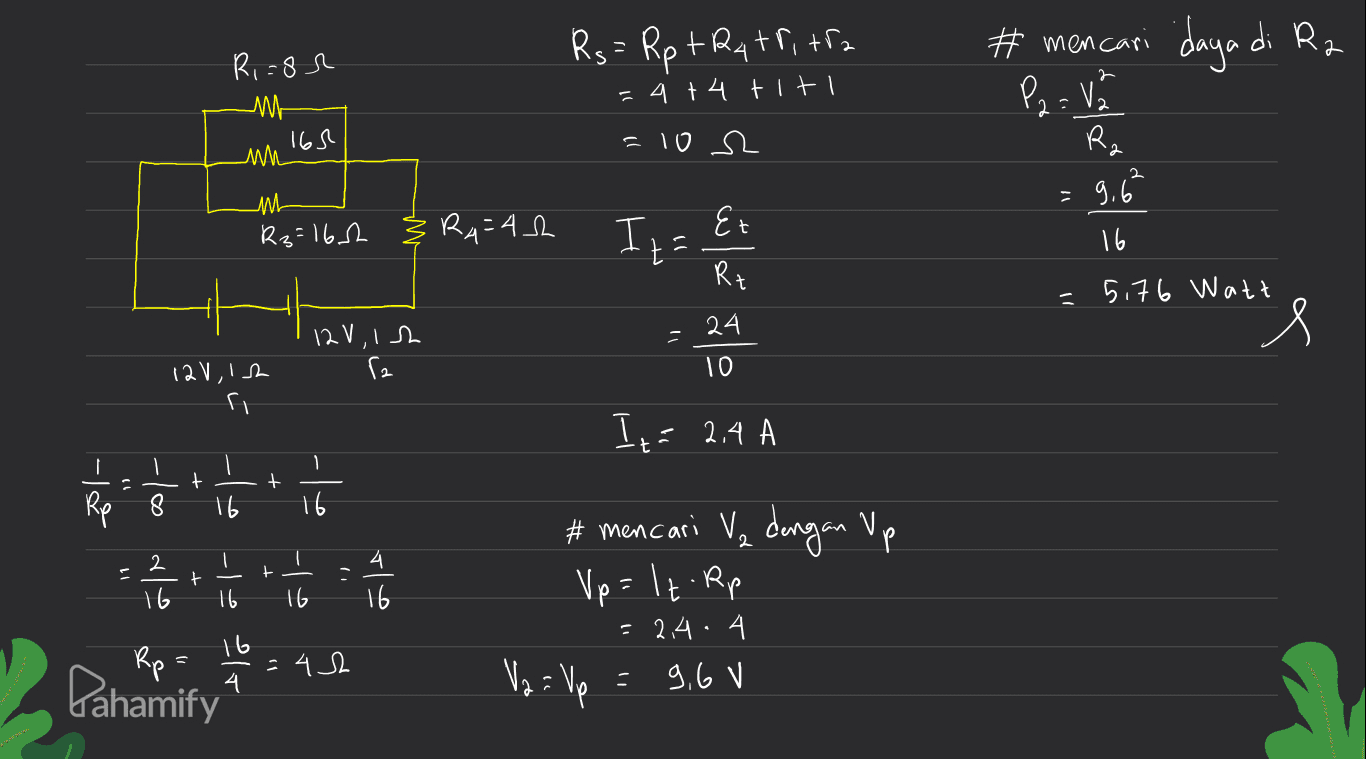 R₁=8Ω
16Ω
R₃=16Ω
R₄=4Ω
12V,1Ω
r₂
12V,1Ω
r₁
1/Rp = 1/8 + 1/16 + 1/16
= 2/16 + 1/16 + 1/16 = 4/16
Rp = 16/4 = 4Ω
Pahamify
Rs = Rp+R₄+r₁+r₂
= 4+4+1+1
= 10 Ω
It = Ɛt/Rt
= 24/10
It = 2,4 A
# mencari V₂ dengan Vp
Vp = It.Rp
= 2,4.4
V₂=Vp = 9,6 V
# mencari daya di R₂
P₂ = V₂²/R₂
= 9,6²/16
= 5,76 Watt